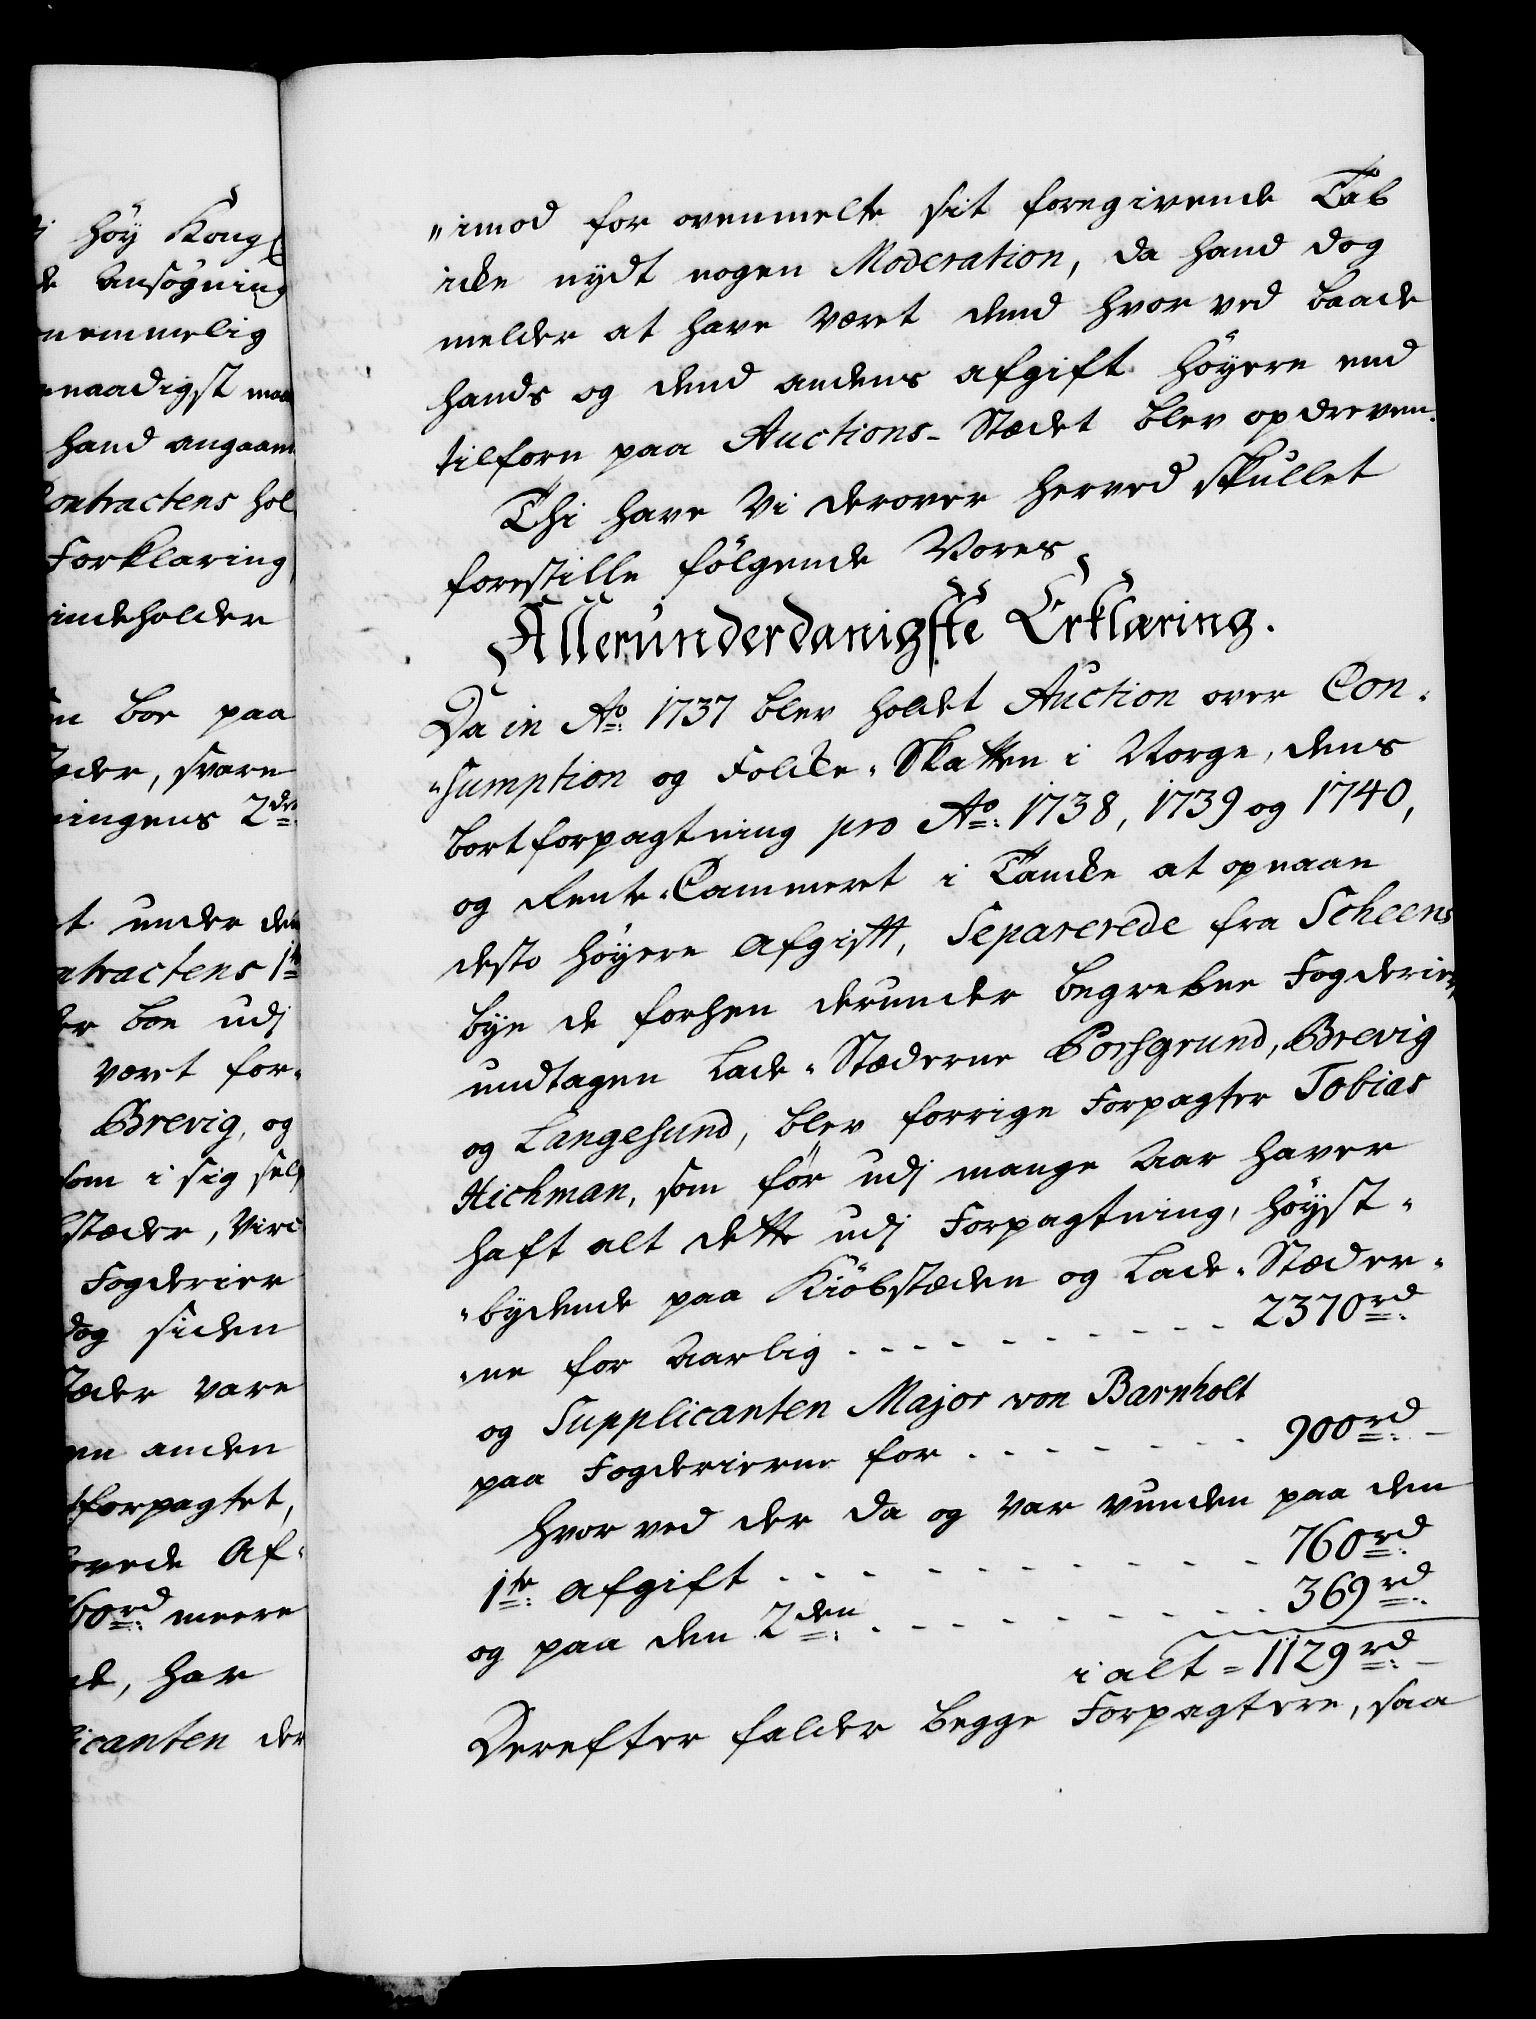 j høy Kongl
de Ansøgning
nemmelig
naadigst maa
hand angaaen
Contractens hol
Forklaring,
indeholder
en boe paa
stæder, svare
ningens 2den
t under den
ntractens 1te
er boe udj
været for-
Brevig, og
som i sig self
stæder, Vire
Fogderier
dog siden
stæder vare
en anden
forpagtet,
ovede Af-
60 rd meere
de, har
licanten der
"imod for ovenmelte sit foregivende Tab
icke nÿdt nogen Moderation, da hand dog
melder at have været dend hvorved baade
hands og dend andens afgift høyere end
tilforn paa Auctions-Stædet blev opdreven.
Thi have Vi derover herved skullet
forestille følgende Vores
Allerunderdanigste Erklæring.
Da in Ao: 1737 blev holdt Auction over Con-
"sumption og Folcke-Skatten i Norge, dens
bortforpagtning pro Ao: 1738, 1739 og 1740,
og Rente-Cammeret i Tancke at opnaae
desto høyere Afgift, Separerede fra Scheens
bye de forhen derunder begrebne Fogderier,
undtagen Lade-Stæderne Porsgrund, Brevig
og Langesund, blev forrige Forpagter Tobias
Hichman, som før udj mange Aar haver
haft alt dette udj Forpagtning, høyst-
"bydende paa Kiøbstæden og Lade-Stæder-
"ne for Aarlig - - - - - - - - - - 2370 rd:
og Supplicanten Major von Barnholt
paa Fogderierne for - - - - - - - 900 rd: -
hvorved der da og var vunden paa den
1te: afgift - - - - - - - - - - 760 rd:
og paa den 2den: - - - - - - - - - 369 rd:
i alt = 1129 rd: -
Derefter falder begge Forpagtere, saa